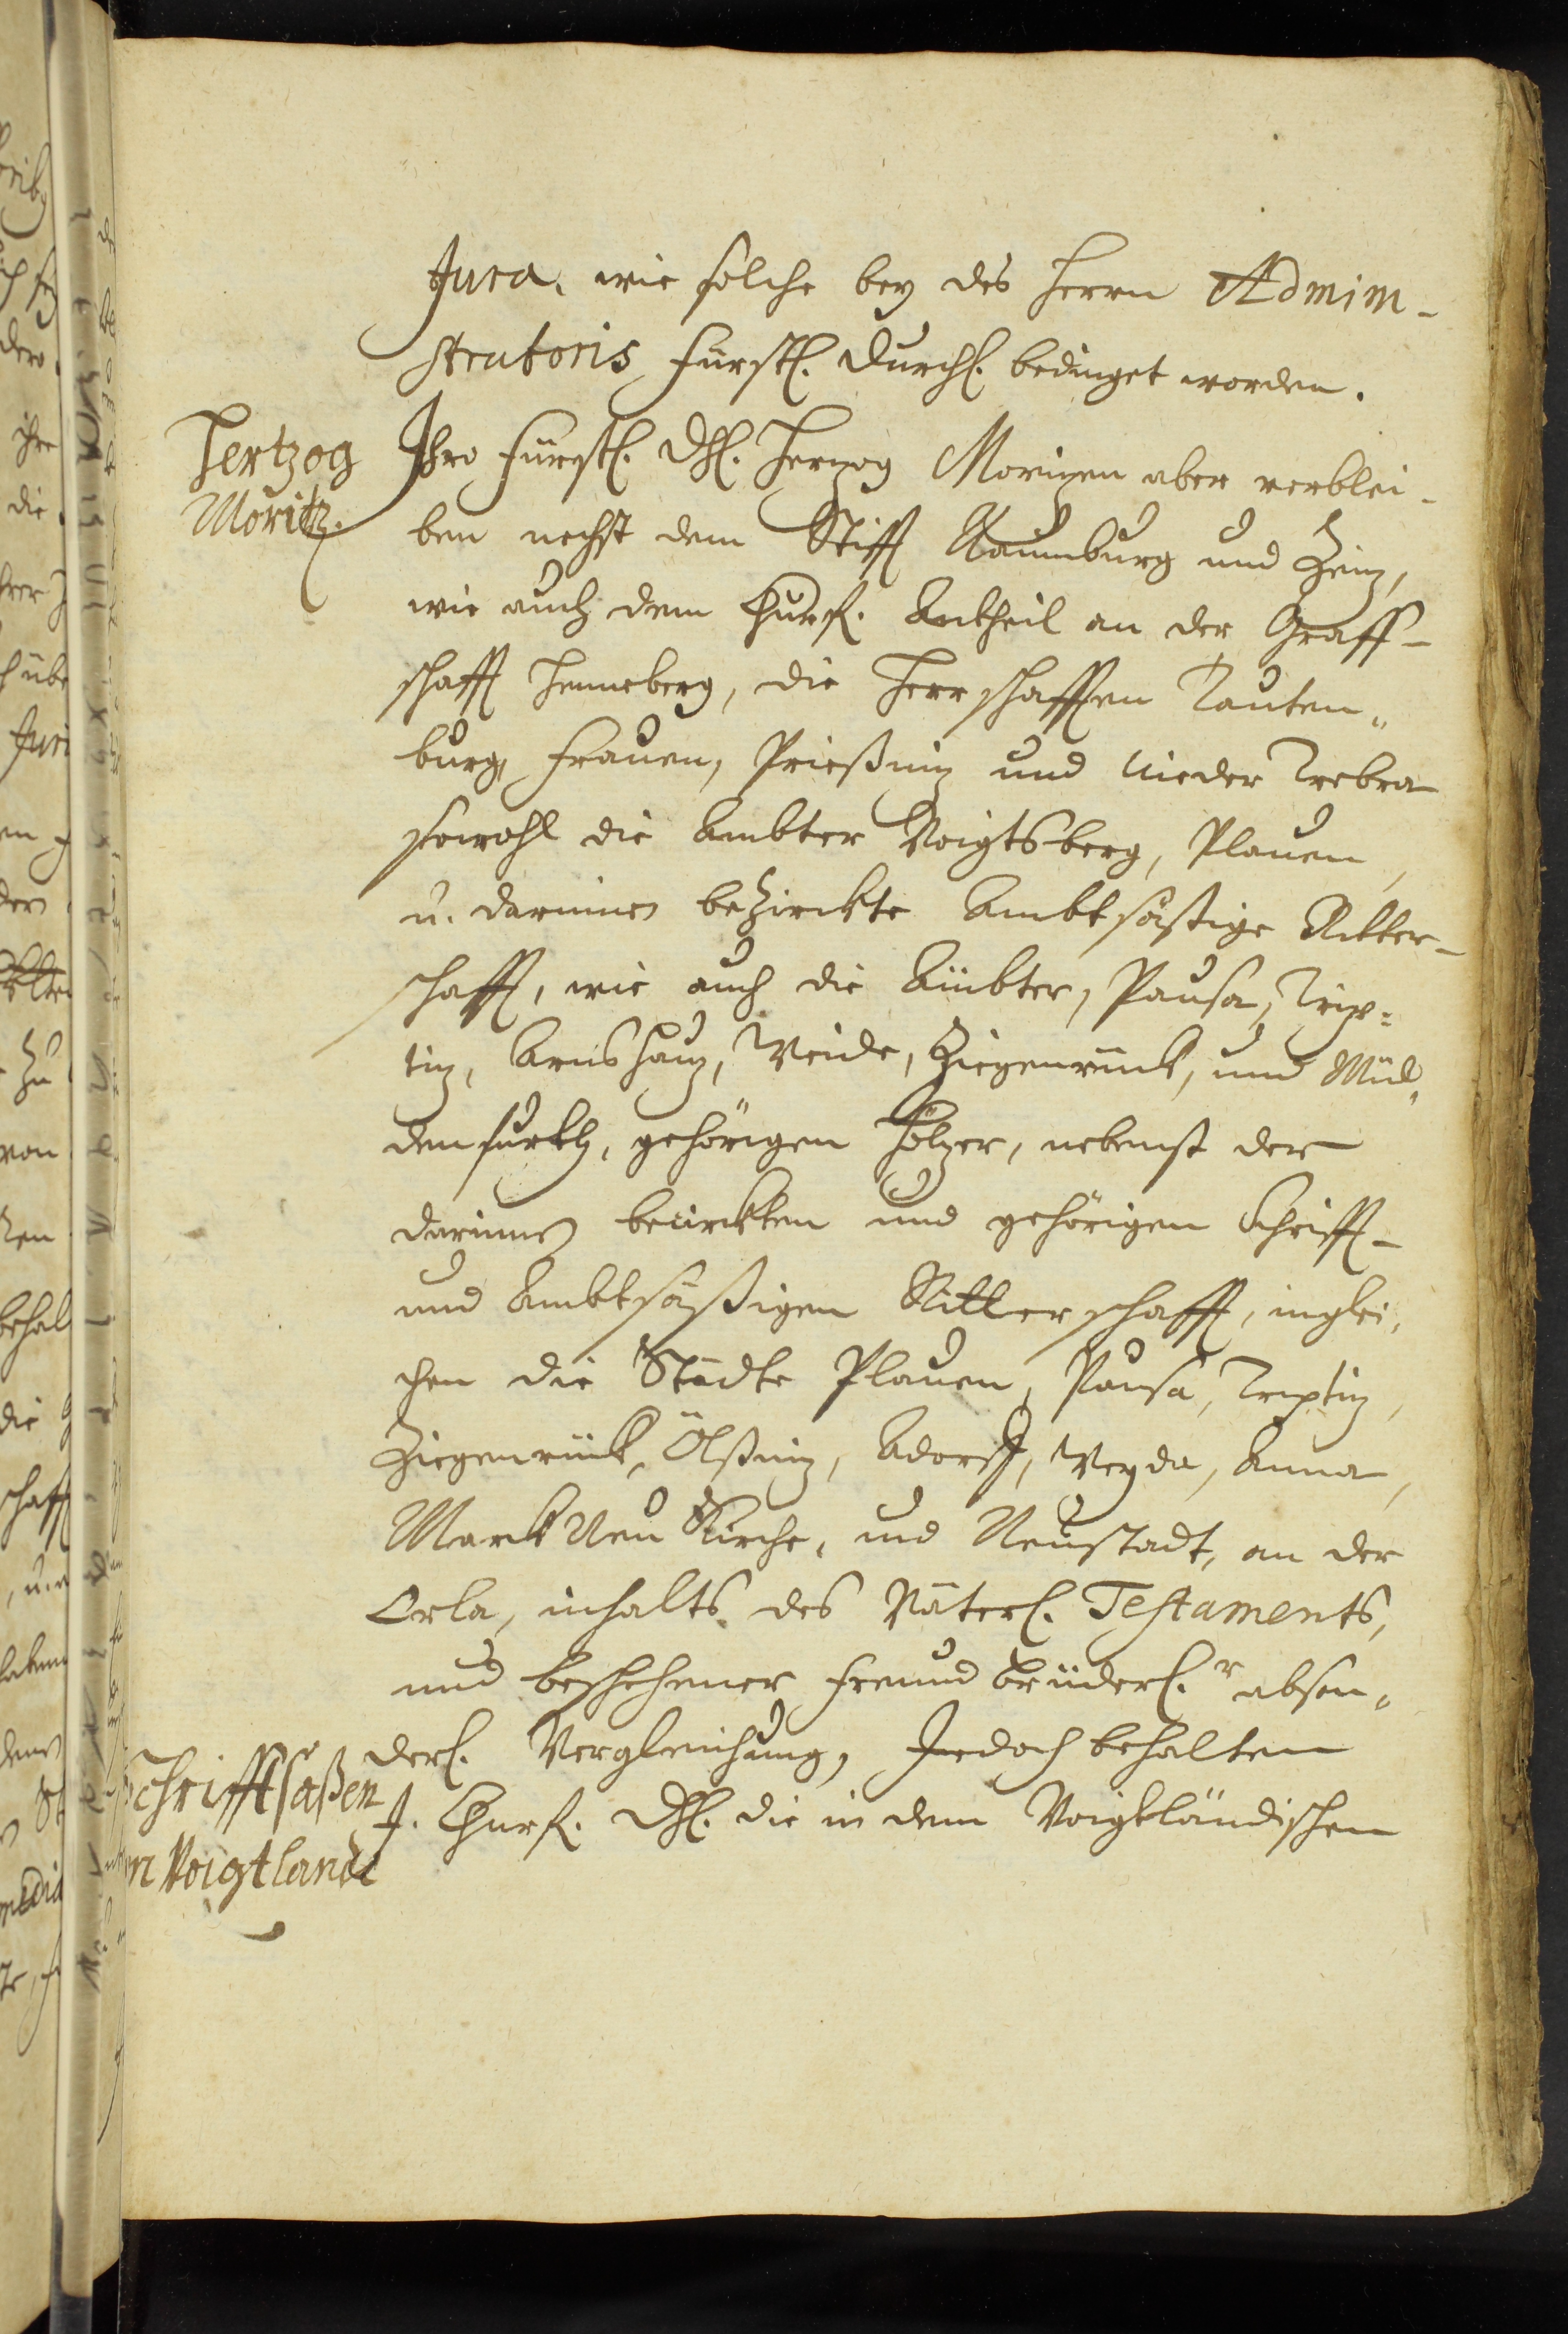 Jura, wie solche bey des Herrn Admini-
stratoris Fürstl. Durchl. bedinget worden.
Hertzog
Moritz.
Ihro Fürstl. Dhl. Herzog Morizen aber verblei-
ben nechst dem Stifft Naumburg und Zeiz,
wie auch dem Churf. Antheil an der Graff-
schafft Henneberg, die Herrschafften Tauten„
burg, Frauen, Prießniz und Nieder Trebra
sowohl die Ambter Voigtsberg, Plauen,
u. darinnen bezirckte Ambtsäßige Ritter-
schafft, wie auch die Ämbter, Pausa, Trip=
tiz, Arnshaug, Weida, Ziegenrück, und
gehörigen Hölzer, nebenst der
darinnen bezirckten und gehörigen Schrifft-
und Ambtsäßigen Ritterschafft, inglei„
chen die Städte Plauen, Pausa, Triptiz,
Ziegenrück, Ölßniz, Adorff, Weyda, Auma,
Marck Neu Kirche, und Neustadt, an der
Orla, inhalts des Väterl. Testaments,
und beschehener freund brüderl.r abson„
derl. Vergleichung, Jedoch behalten
Schrifftsaßen
im Voigtlande
J. Churf. Dhl. die in dem Voigtländischen